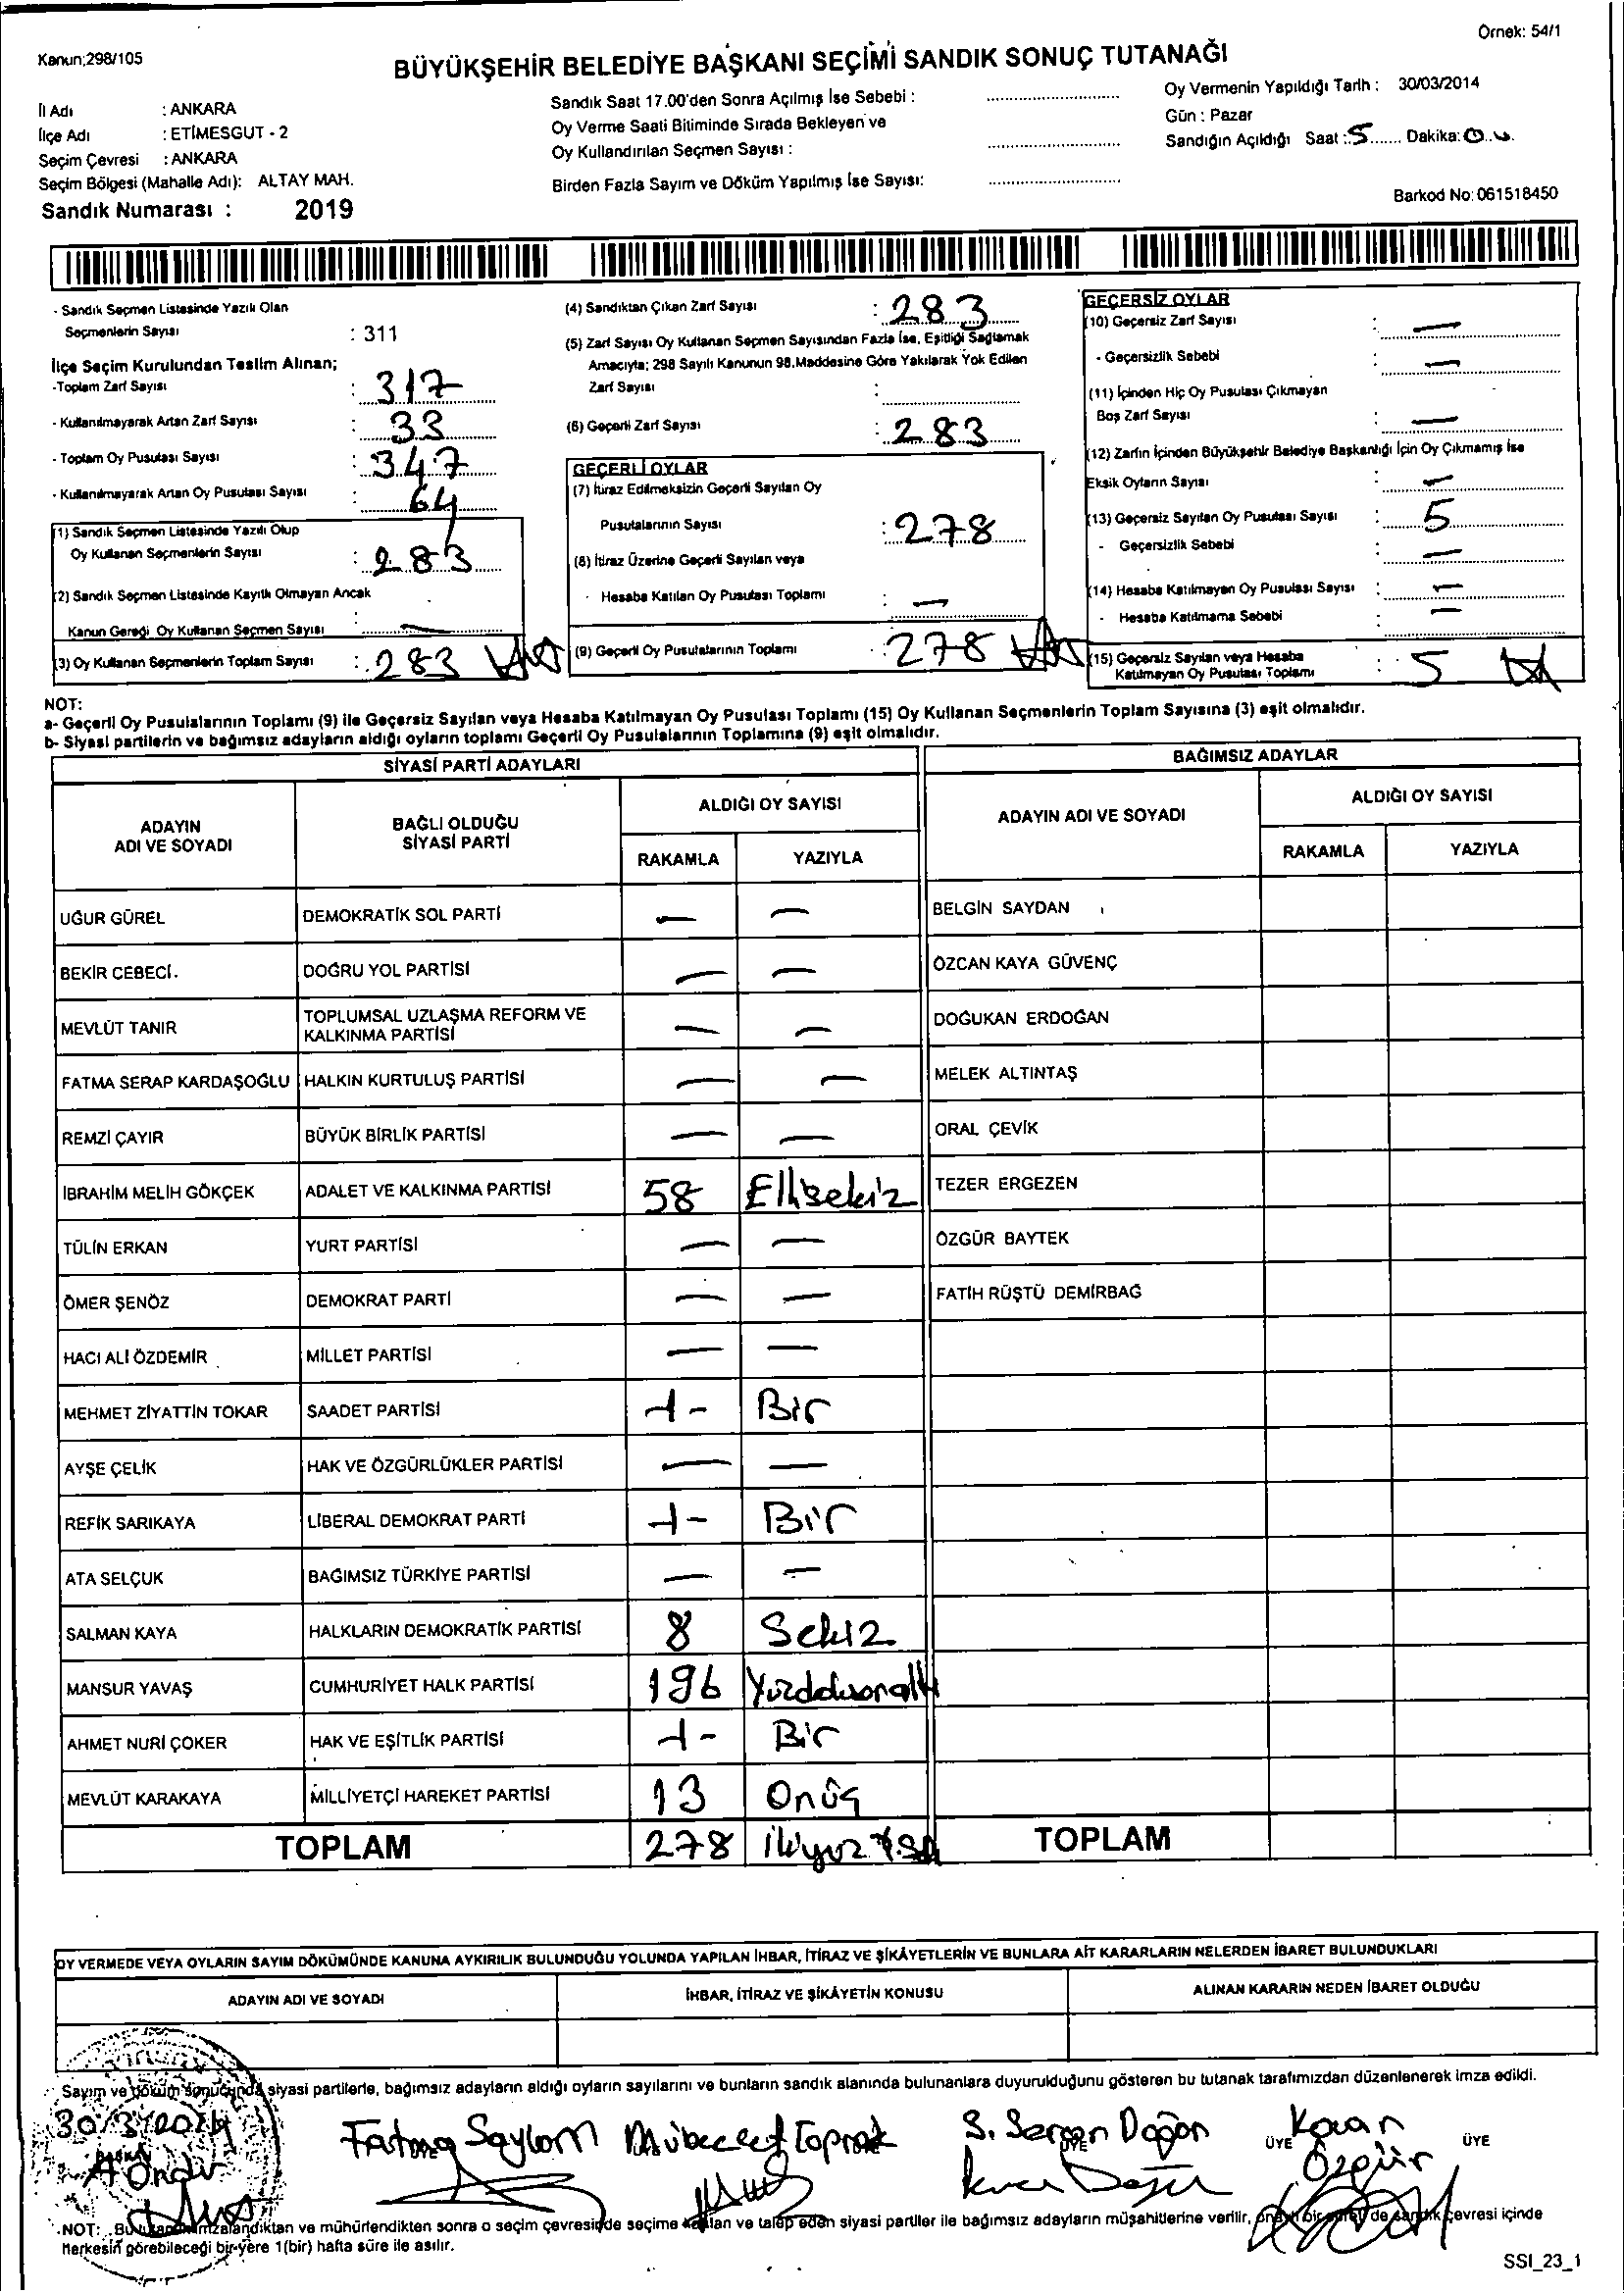 Örnek: 54/1
Kanun;298/105
BÜYÜKŞEHİR BELEDİYE BAŞKANI SEÇİMİ SANDIK SONUÇ TUTANAĞI
İl Adı : ANKARA
İlçe Adı : ETİMESGUT - 2
Seçim Çevresi : ANKARA
Seçim Bölgesi (Mahalle Adı): ALTAY MAH.
Sandık Numarası : 2019
Sandık Saat 17.00'den Sonra Açılmış İse Sebebi :
Oy Verme Saati Bitiminde Sırada Bekleyen ve
Oy Kullandırılan Seçmen Sayısı :
Birden Fazla Sayım ve Döküm Yapılmış İse Sayısı:
Oy Vermenin Yapıldığı Tarih : 30/03/2014
Gün : Pazar
Sandığın Açıldığı Saat : 5 Dakika:
Barkod No: 061518450
- Sandık Seçmen Listesinde Yazılı Olan
Seçmenlerin Sayısı : 311
İlçe Seçim Kurulundan Teslim Alınan;
-Toplam Zarf Sayısı : 317
- Kullanılmayarak Artan Zarf Sayısı : 33
- Toplam Oy Pusulası Sayısı : 347
- Kullanılmayarak Artan Oy Pusulası Sayısı : 64
(1) Sandık Seçmen Listesinde Yazılı Olup
Oy Kullanan Seçmenlerin Sayısı : 283
(2) Sandık Seçmen Listesinde Kayıtlı Olmayan Ancak
Kanun Gereği Oy Kullanan Seçmen Sayısı : —
(3) Oy Kullanan Seçmenlerin Toplam Sayısı : 283
(4) Sandıktan Çıkan Zarf Sayısı : 283
(5) Zarf Sayısı Oy Kullanan Seçmen Sayısından Fazla İse, Eşitliği Sağlamak
Amacıyla; 298 Sayılı Kanunun 98.Maddesine Göre Yakılarak Yok Edilen
Zarf Sayısı :
(6) Geçerli Zarf Sayısı : 283
GEÇERLİ OYLAR
(7) İtiraz Edilmeksizin Geçerli Sayılan Oy
Pusulalarının Sayısı : 278
(8) İtiraz Üzerine Geçerli Sayılan veya
- Hesaba Katılan Oy Pusulası Toplamı : —
(9) Geçerli Oy Pusulalarının Toplamı : 278
GEÇERSİZ OYLAR
(10) Geçersiz Zarf Sayısı : —
- Geçersizlik Sebebi : —
(11) İçinden Hiç Oy Pusulası Çıkmayan
Boş Zarf Sayısı : —
(12) Zarfın İçinden Büyükşehir Belediye Başkanlığı İçin Oy Çıkmamış İse
Eksik Oyların Sayısı : —
(13) Geçersiz Sayılan Oy Pusulası Sayısı : 5
- Geçersizlik Sebebi : —
(14) Hesaba Katılmayan Oy Pusulası Sayısı : —
- Hesaba Katılmama Sebebi : —
(15) Geçersiz Sayılan veya Hesaba
Katılmayan Oy Pusulası Toplamı : 5
NOT:
a- Geçerli Oy Pusulalarının Toplamı (9) ile Geçersiz Sayılan veya Hesaba Katılmayan Oy Pusulası Toplamı (15) Oy Kullanan Seçmenlerin Toplam Sayısına (3) eşit olmalıdır.
b- Siyasi partilerin ve bağımsız adayların aldığı oyların toplamı Geçerli Oy Pusulalarının Toplamına (9) eşit olmalıdır.
SİYASİ PARTİ ADAYLARI
BAĞIMSIZ ADAYLAR
ADAYIN ADI VE SOYADI
BAĞLI OLDUĞU SİYASİ PARTİ
ALDIĞI OY SAYISI
RAKAMLA YAZIYLA
ADAYIN ADI VE SOYADI
ALDIĞI OY SAYISI
RAKAMLA YAZIYLA
UĞUR GÜREL DEMOKRATİK SOL PARTİ — — BELGİN SAYDAN
BEKİR CEBECİ. DOĞRU YOL PARTİSİ — — ÖZCAN KAYA GÜVENÇ
MEVLÜT TANIR TOPLUMSAL UZLAŞMA REFORM VE KALKINMA PARTİSİ — — DOĞUKAN ERDOĞAN
FATMA SERAP KARDAŞOĞLU HALKIN KURTULUŞ PARTİSİ — — MELEK ALTINTAŞ
REMZİ ÇAYIR BÜYÜK BİRLİK PARTİSİ — — ORAL ÇEVİK
İBRAHİM MELİH GÖKÇEK ADALET VE KALKINMA PARTİSİ 58 Ellisekiz TEZER ERGEZEN
TÜLİN ERKAN YURT PARTİSİ — — ÖZGÜR BAYTEK
ÖMER ŞENÖZ DEMOKRAT PARTİ — — FATİH RÜŞTÜ DEMİRBAĞ
HACI ALİ ÖZDEMİR MİLLET PARTİSİ — —
MEHMET ZİYATTİN TOKAR SAADET PARTİSİ -1- Bir
AYŞE ÇELİK HAK VE ÖZGÜRLÜKLER PARTİSİ — —
REFİK SARIKAYA LİBERAL DEMOKRAT PARTİ -1- Bir
ATA SELÇUK BAĞIMSIZ TÜRKİYE PARTİSİ — —
SALMAN KAYA HALKLARIN DEMOKRATİK PARTİSİ 8 Sekiz
MANSUR YAVAŞ CUMHURİYET HALK PARTİSİ 196 Yüzdoksanaltı
AHMET NURİ ÇOKER HAK VE EŞİTLİK PARTİSİ -1- Bir
MEVLÜT KARAKAYA MİLLİYETÇİ HAREKET PARTİSİ 13 Onüç
TOPLAM 278 ikiyüz TOPLAM
OY VERMEDE VEYA OYLARIN SAYIM DÖKÜMÜNDE KANUNA AYKIRILIK BULUNDUĞU YOLUNDA YAPILAN İHBAR, İTİRAZ VE ŞİKÂYETLERİN VE BUNLARA AİT KARARLARIN NELERDEN İBARET BULUNDUKLARI
ADAYIN ADI VE SOYADI İHBAR, İTİRAZ VE ŞİKÂYETİN KONUSU ALINAN KARARIN NEDEN İBARET OLDUĞU
Sayım ve döküm sonucunda siyasi partilerle, bağımsız adayların aldığı oyların sayılarını ve bunların sandık alanında bulunanlara duyurulduğunu gösteren bu tutanak tarafımızdan düzenlenerek imza edildi.
30/3/2014 Fatma Saylam Mübeccel Toprak S. Sercan Doğan Kaan
ÜYE ÜYE ÜYE
BAŞKAN Özgür
NOT: Bu tutanak imzalandıktan ve mühürlendikten sonra o seçim çevresinde seçime katılan ve talep eden siyasi partiler ile bağımsız adayların müşahitlerine verilir, onaylı bir sureti de sandık çevresi içinde
herkesin görebileceği bir yere 1(bir) hafta süre ile asılır.
SSI_23_1